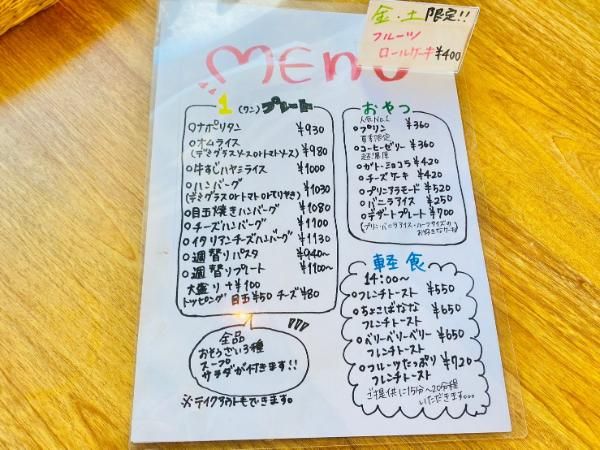 金・土 限定!!
フルーツ
ロールケーキ ¥400
MENU
1(ワン)プレート
○ナポリタン ¥930
○オムライス
(デミグラスソースorトマトソース) ¥980
○牛すじハヤシライス ¥1000
○ハンバーグ
(デミグラスorトマトorてりやき) ¥1030
○目玉焼きハンバーグ ¥1080
○チーズハンバーグ ¥1100
○イタリアンチーズハンバーグ ¥1130
○週替りパスタ ¥940〜
○週替りプレート ¥1100〜
大盛り +¥100
トッピング 目玉¥50 チーズ¥80
全品
おそうざい3種
スープ
サラダが付きます!!
※テイクアウトもできます。
おやつ
人気No.1
○プリン ¥360
夏季限定
○コーヒーゼリー ¥360
超濃厚
○ガトーショコラ ¥420
○チーズケーキ ¥420
○プリンアラモード ¥520
○バニラアイス ¥250
○デザートプレート ¥700
(プリン・バニラアイス・ハーフサイズの
お好きなケーキ)
軽食
14:00〜
○フレンチトースト ¥550
○ちょこばなな ¥650
フレンチトースト
○ベリーベリーベリー ¥650
フレンチトースト
○フルーツたっぷり ¥720
フレンチトースト
ご提供に15分〜20分程
いただきます。